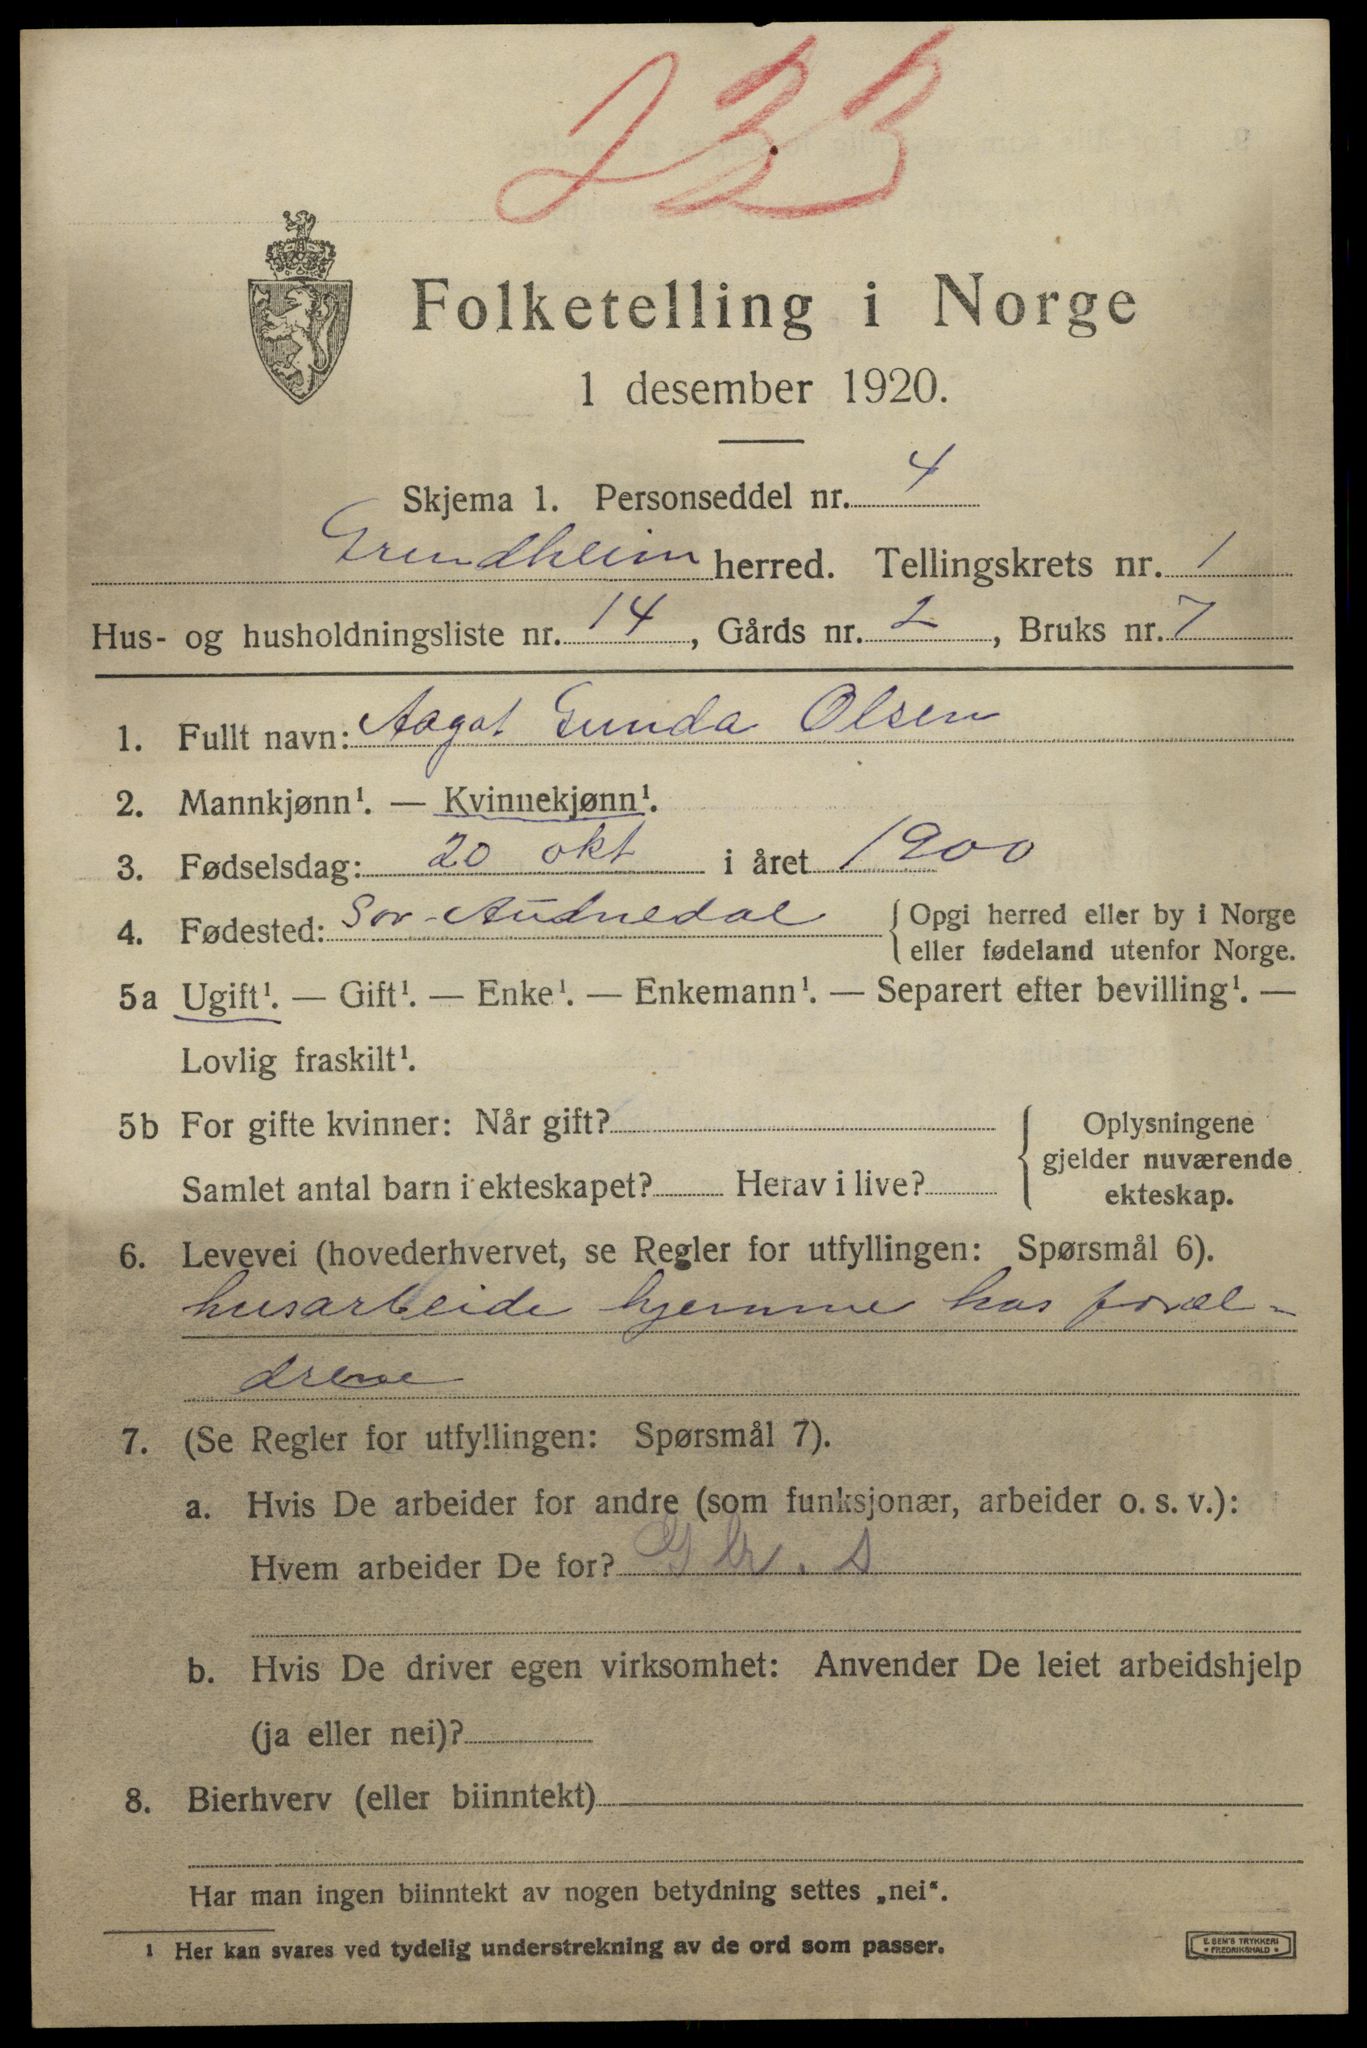 233
Folketelling i Norge
1 desember 1920.
Skjema 1. Personseddel nr. 4
Grindheim herred. Tellingskrets nr. 1
Hus- og husholdningsliste nr. 14, Gårds nr. 2, Bruks nr. 7
1. Fullt navn: Aagot Gunda Olsen
2. Mannkjønn¹. — Kvinnekjønn¹.
3. Fødselsdag: 20 okt i året 1900
4. Fødested: Sør-Audnedal { Opgi herred eller by i Norge
eller fødeland utenfor Norge.
5a Ugift¹. — Gift¹. — Enke¹. — Enkemann¹. — Separert efter bevilling¹. —
Lovlig fraskilt¹.
5b For gifte kvinner: Når gift?
Samlet antal barn i ekteskapet? Herav i live?
{ Oplysningene
gjelder nuværende
ekteskap.
6. Levevei (hovederhvervet, se Regler for utfyllingen: Spørsmål 6).
husarbeide hjemme hos foræl-
drene
7. (Se Regler for utfyllingen: Spørsmål 7).
a. Hvis De arbeider for andre (som funksjonær, arbeider o. s. v.):
Hvem arbeider De for?
b. Hvis De driver egen virksomhet: Anvender De leiet arbeidshjelp
(ja eller nei)?
8. Bierhverv (eller biinntekt)
Har man ingen biinntekt av nogen betydning settes „nei“.
¹ Her kan svares ved tydelig understrekning av de ord som passer.
E. SEM'S TRYKKERI
• FREDRIKSHALD •